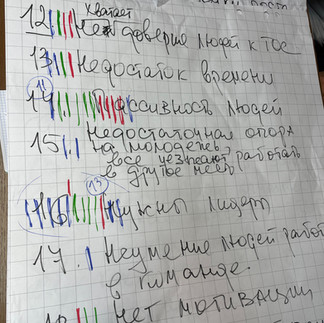 хватает
12 Не доверия людей к ТОС
13 Недостаток времени
11
14. Пассивность людей
15. Недостаточная опора
на молодежь,
все уезжают работать
в другое место
13
16 Нужны лидеры
17. Неумение людей работ
в команде.
18 нет мотивации